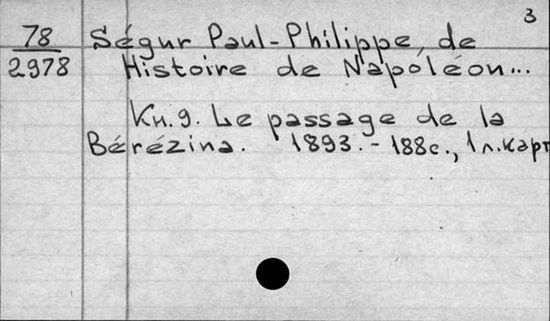 3
78
2978
Ségur Paul-Philippe, de
Histoire de Napoléon...
Кн. 9. Le passage de la
Bérézina. 1893. - 188с., 1 л. карт